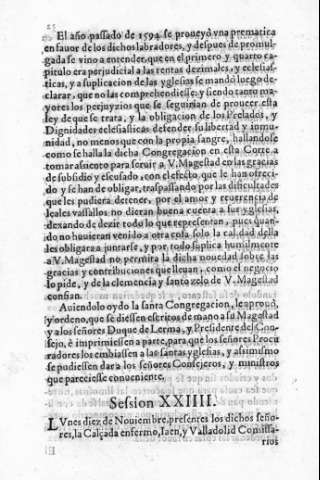 El año passado de 1594 se proueyó vna prematica
en fauor de los dichos labradores, y despues de promul-
gada se vino a entender, que en el primero y quarto ca-
pitulo era perjudicial a las rentas dezimales, y eclesias-
ticas, y a suplicacion de las yglesias se mandò luego de-
clarar, que no las comprehendiesse: y siendo tanto ma-
yores los perjuyzios que se seguirian de proueer esta
ley de que se trata, y la obligacion de los Prelados, y
Dignidades eclesiasticas defender su libertad y inmu-
nidad, no menos que con la propia sangre, hallandose
como se halla la dicha Congregacion en esta Corte a
tomar assiento para seruir a V. Magestad en las gracias
de subsidio y escusado, con el efeto, que le han ofreci-
do y se han de obligar, traspassando por las dificultades
que les pudiera detener, por el amor y reuerencia de
leales vassallos no dieran buena cuenta a sus yglesias,
dexando de dezir todo lo que representan, pues quan-
do no huuieran venido a otra cosa, solo la calidad della
les obligara a juntarse, y por todo suplica humilmente
a V. Magestad no permita la dicha nouedad sobre las
gracias y contribuciones que lleuan, como el negocio
lo pide, y de la clemencia y santo zelo de V. Magestad
confian.
Auiendolo oydo la santa Congregacion, le aprouò,
y ordeno, que se diessen escritos de mano a su Magestad
y a los señores Duque de Lerma, y Presidente del Con-
sejo, è imprimiessen a parte, para que los señores Procu
radores los embiassen a las santas yglesias, y assimismo
se pudiessen dar a los señores Consejeros, y ministros
que pareciesse conueniente.
Session XXIIII.
LVnes diez de Nouiembre, presentes los dichos seño-
res, la Calçada enfermo, Iaen, y Valladolid Comissa-
rios